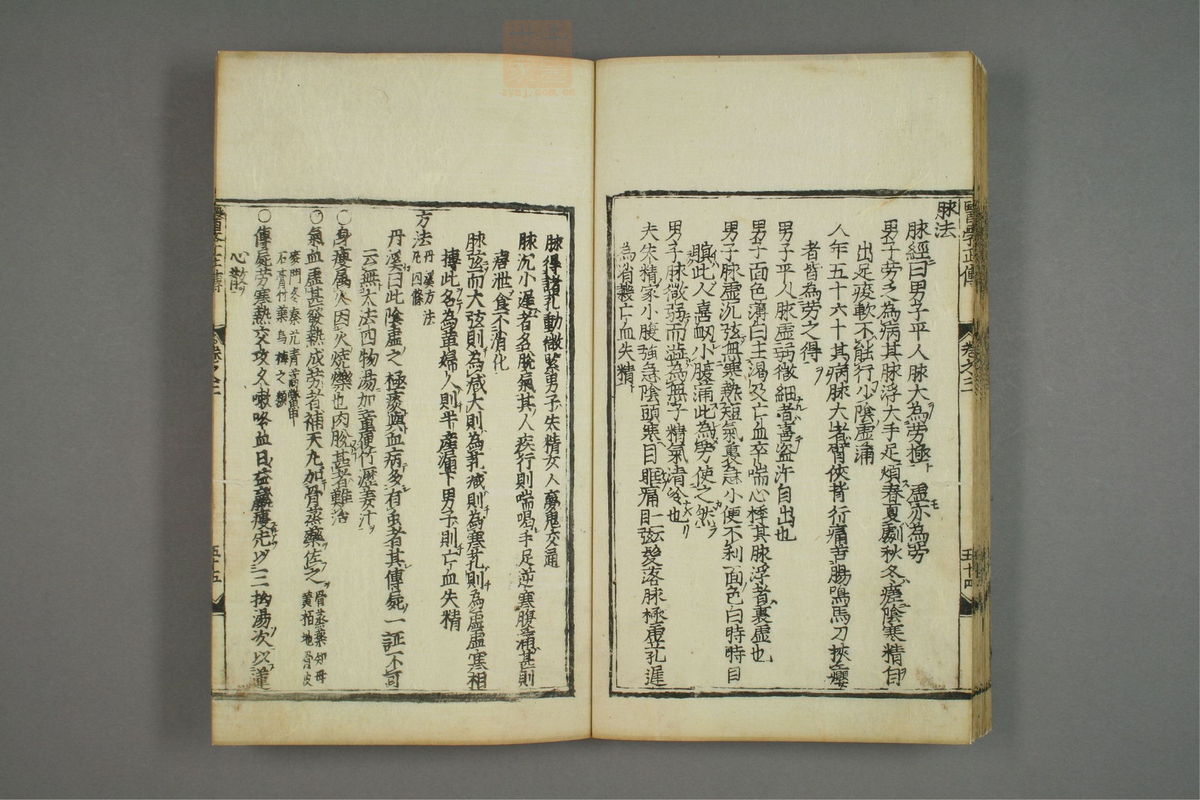 醫學正傳 卷之三 五十四
脉法
脉經曰男子平人脉大為労極虚亦為労
男子労之為病其脉浮大手足煩春夏劇秋冬瘥陰寒精自
出足痠軟不能行少陰虚滿
人年五十六十其病脉大者痺俠背行痛苦腸鳴馬刀挾癭
者皆為労之得
男子平人脉虚弱微細者喜盗汗自出也
男子面色薄白主渇及亡血卒喘心悸其脉浮者裏虚也
男子脉虚沉弦無寒熱短氣裏急小便不利面色白時時目
瞋此人喜衂小腹滿此為労使之然
男子脉微弱而澁為無子精氣清冷也
夫失精家小腹強急陰頭寒目眶痛目弦髪落脉極虚芤遲
為清穀亡血失精
脉得諸芤動微緊男子失精女人夢鬼交通
脉沉小遲者名脫氣其人疾行則喘喝手足逆寒腹滿甚則
溏泄食不消化
脉弦而大弦則為减大則為芤减則為寒芤則為虚虚寒相
搏此名為革婦人則半産漏下男子則亡血失精
方法 丹溪方法凡四條
丹溪曰此陰虚之極痰與血病多有虫者其傳屍一証不可
云無大法四物湯加童便竹瀝姜汁
○身瘦屬火因火燒爍也肉脫甚者難治
○氣血虚甚發熱成労者補天丸加骨蒸藥佐之 骨蒸藥知母黄栢地骨皮
麥門冬秦艽青蒿鱉甲石膏竹葉烏梅之類
○傳屍労寒熱交攻久嗽咯血日益羸瘦先以三拗湯次以蓮
心散
醫學正傳 卷之三 五十五